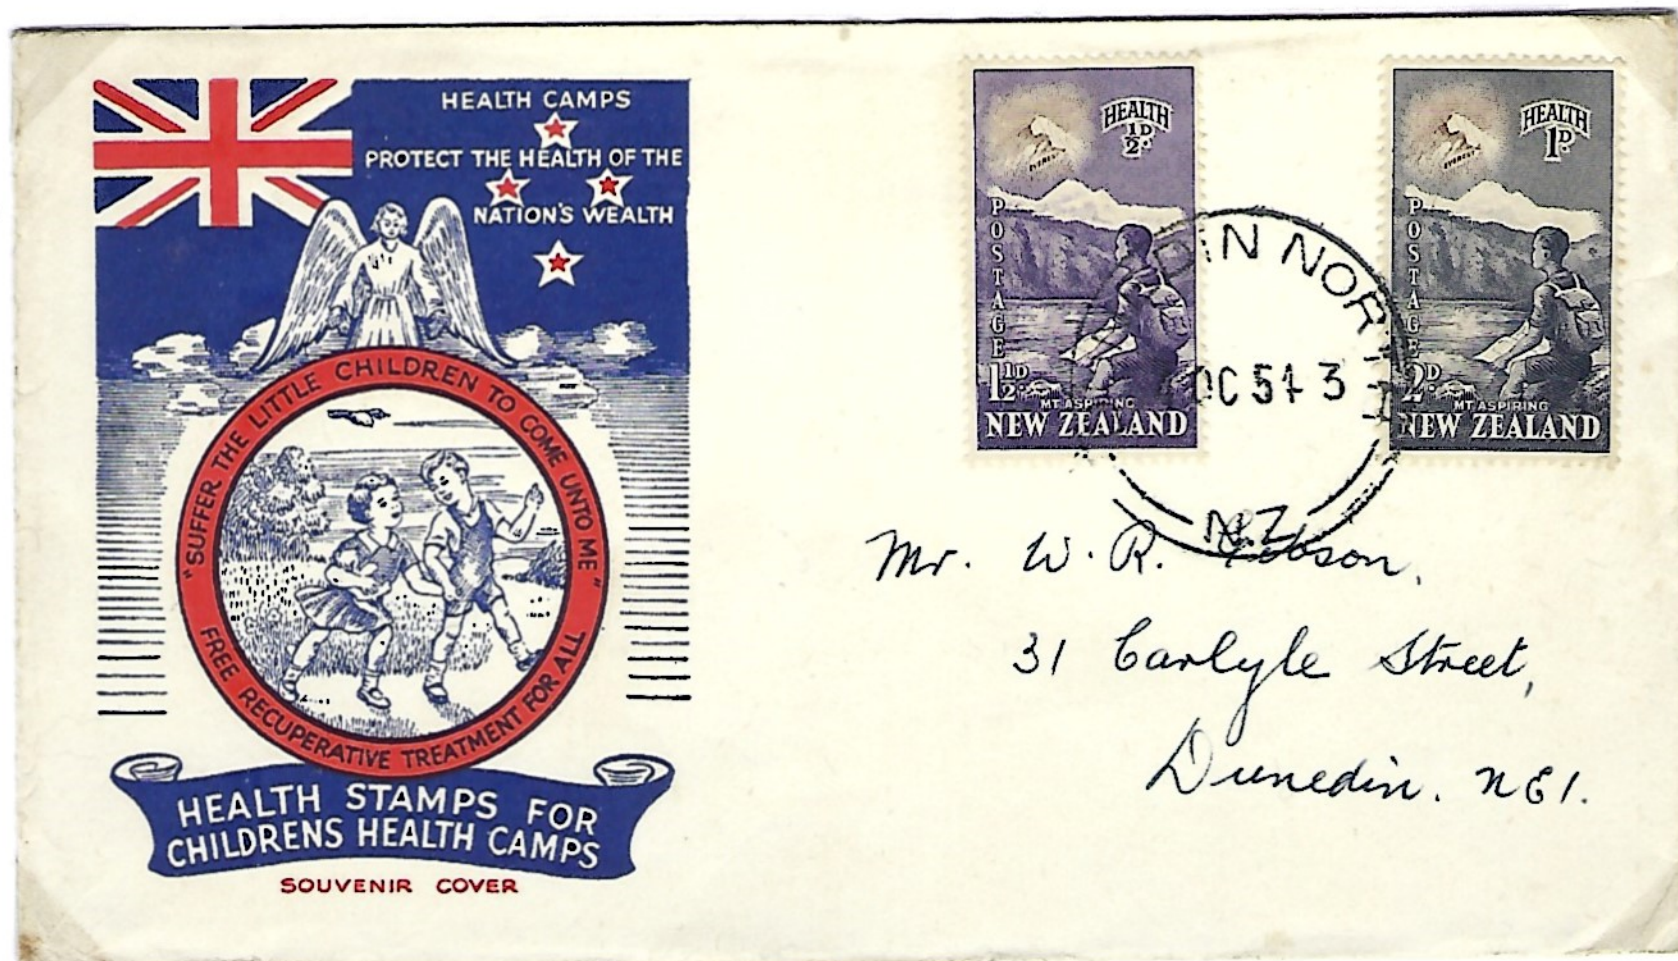 HEALTH CAMPS
PROTECT THE HEALTH OF THE
NATION'S WEALTH
"SUFFER THE LITTLE CHILDREN TO COME UNTO ME"
FREE RECUPERATIVE TREATMENT FOR ALL
HEALTH STAMPS FOR
CHILDRENS HEALTH CAMPS
SOUVENIR COVER
HEALTH
½D.
EVEREST
POSTAGE
1½D.
MT. ASPIRING
NEW ZEALAND
HEALTH
1D.
EVEREST
POSTAGE
2D.
MT. ASPIRING
NEW ZEALAND
IN NORTH
OC 54 3
N.Z.
Mr. W. R.
31 Carlyle Street,
Dunedin. N E 1.